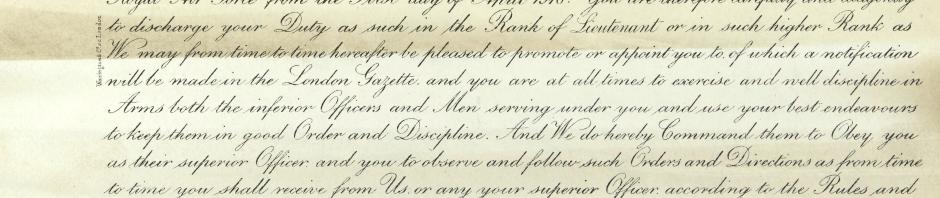 Royal Air Force from the First day of April 1918. You are therefore carefully and diligently
to discharge your Duty as such in the Rank of Lieutenant or in such higher Rank as
We may from time to time hereafter be pleased to promote or appoint you to, of which a notification
will be made in the London Gazette, and you are at all times to exercise and well discipline in
Arms both the inferior Officers and Men serving under you and use your best endeavours
to keep them in good Order and Discipline. And We do hereby Command them to Obey, you
as their superior Officer, and you to observe and follow such Orders and Directions as from time
to time you shall receive from Us, or any your superior Officer, according to the Rules and